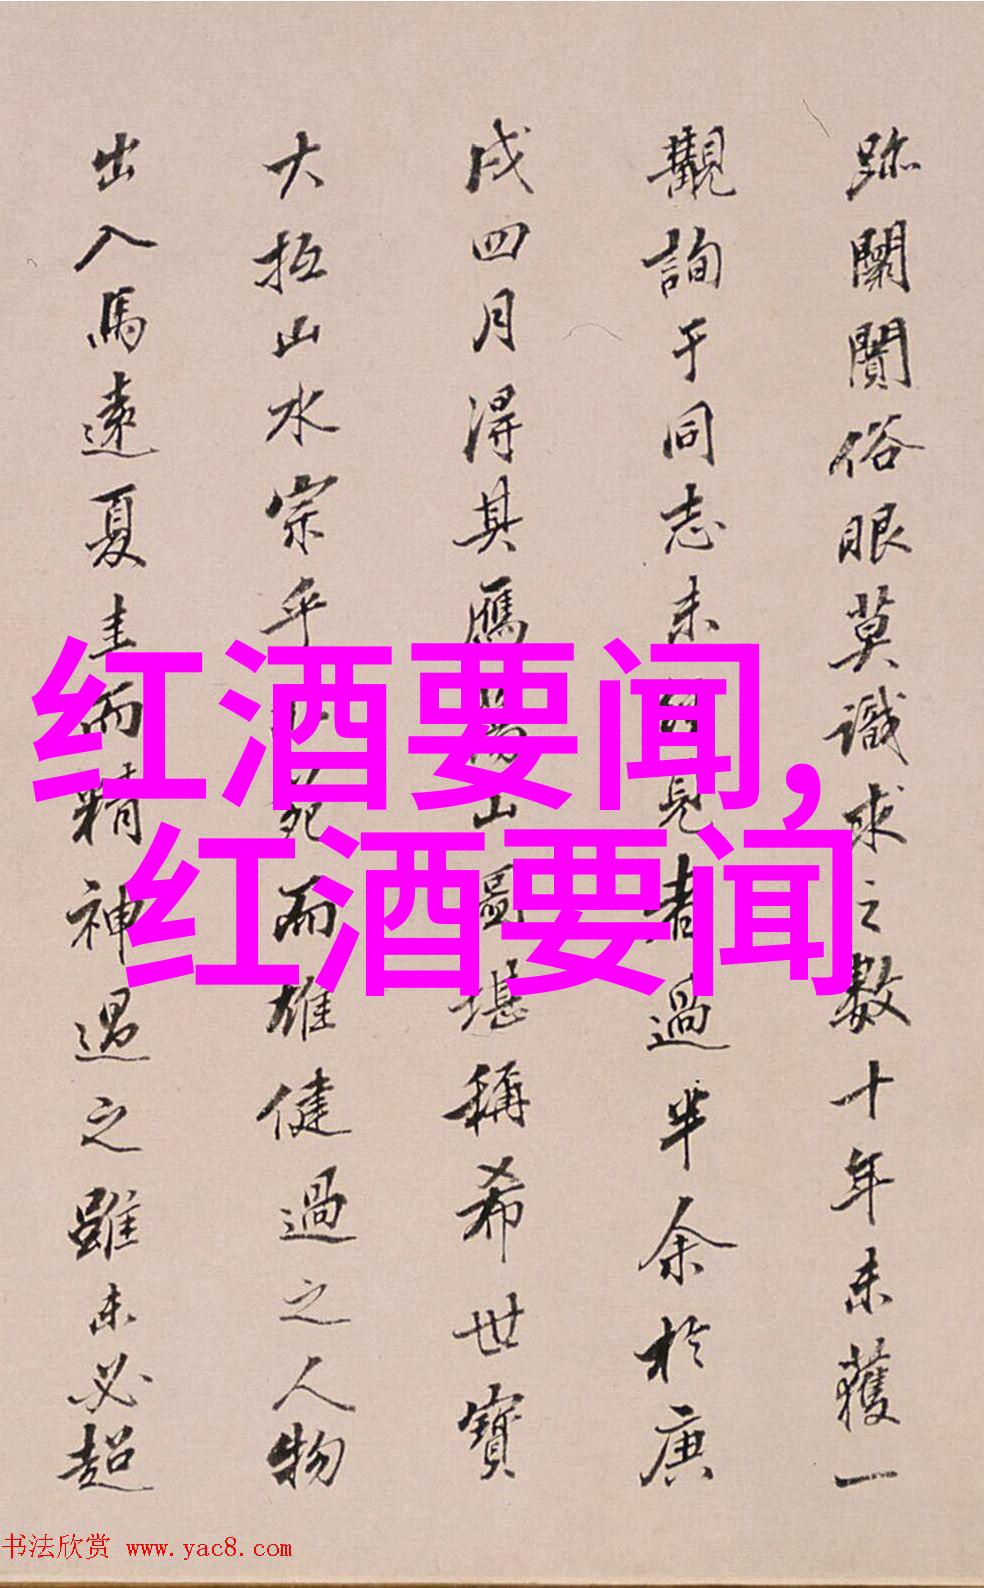 跡闤闠俗眼莫識求之數十年未獲一
觀詢于同志未見者過半余於庚
戌四月得其鴈蕩山圖堪稱希世寶
大抵山水宗乎北苑而雄健過之人物
出入馬遠夏圭而精神過之雖未必超
红酒要闻,
红酒要闻
书法欣赏 www.yac8.com